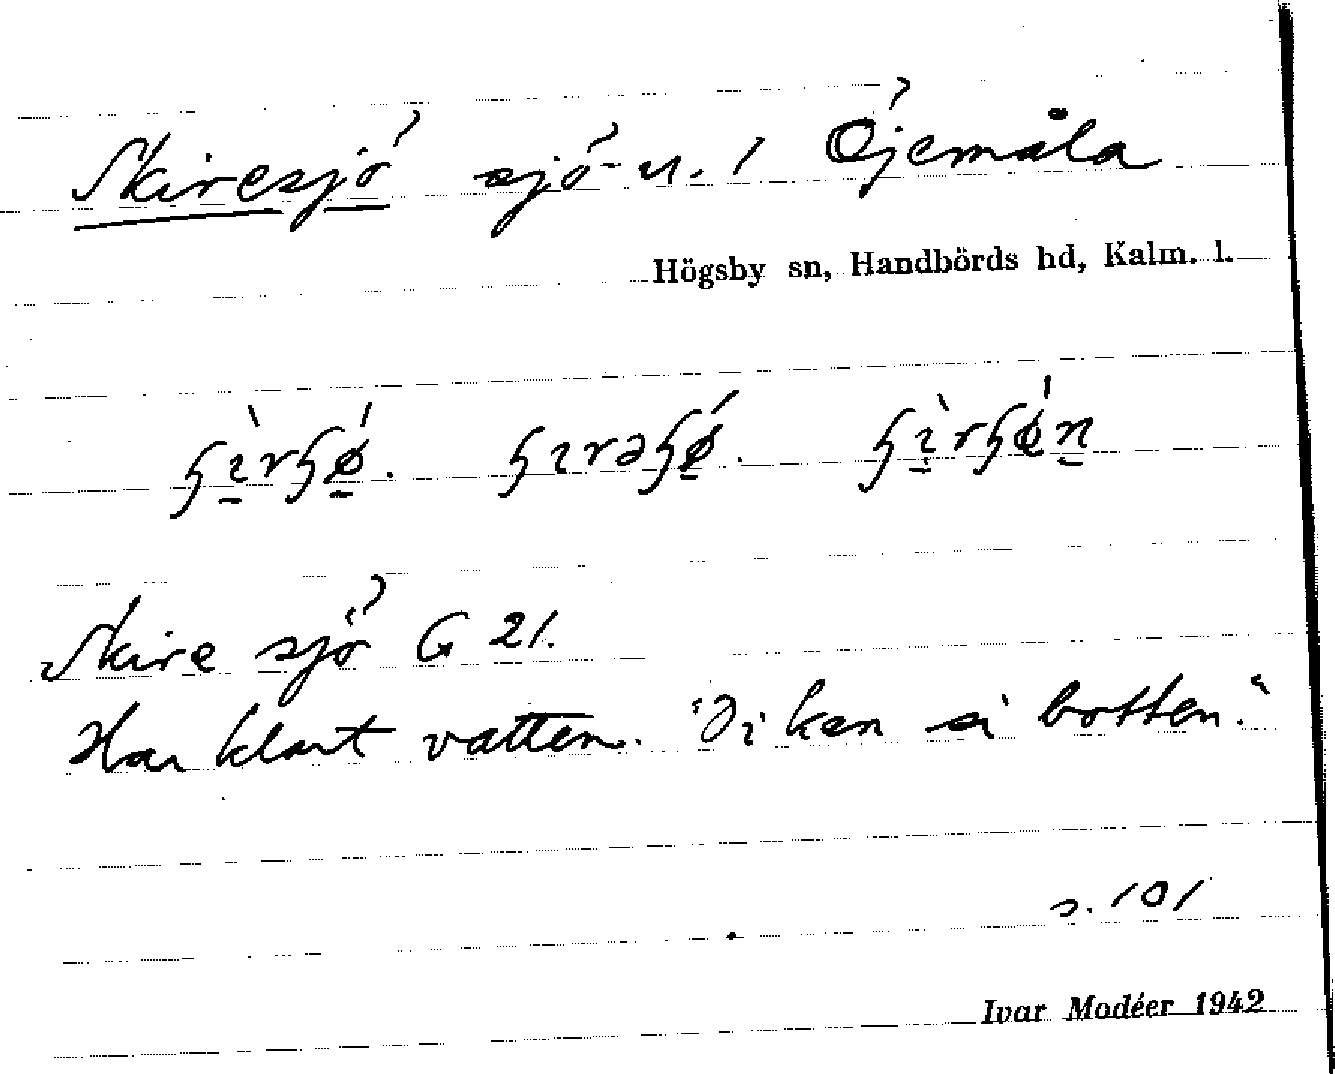 Skiresjö sjö n. 1 Öjemåla
Högsby sn, Handbörds hd, Kalm. l.
ɧı̱̀rɧǿ̱. ɧırəɧǿ̱. ɧı̱̀rɧǿṉ
Skire sjö G 21.
Har klart vatten. kan si botten."
s. 101
Ivar Modéer 1942